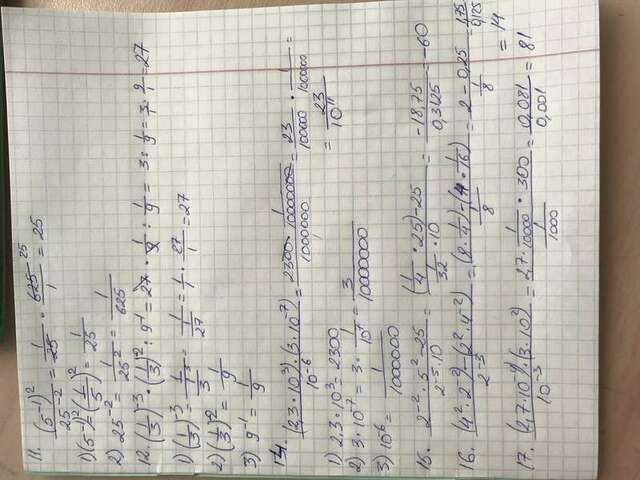 11. (5⁻¹)² / 25⁻² = 1/25 · 625/1 ²⁵ = 25
1) (5⁻¹)² = (1/5)² = 1/25
2) 25⁻² = 1/25² = 1/625
12. (1/3)⁻³ · (1/3)² : 9⁻¹ = 27 · 1/9 : 1/9 = 3 : 1/9 = 3/1 · 9/1 = 27
1) (1/3)⁻³ = 1/(1/3)³ = 1/(1/27) = 1/1 · 27/1 = 27
2) (1/3)² = 1/9
3) 9⁻¹ = 1/9
14. (2,3 · 10³) · (3 · 10⁻⁷) / 10⁻⁶ = (2300 · 1/10000000) / 1000000 = 23/100000 · 1/1000000 =
= 23/10¹¹
1) 2,3 · 10³ = 2300
2) 3 · 10⁻⁷ = 3 · 1/10⁷ = 3/10000000
3) 10⁻⁶ = 1/1000000
15. (2⁻² · 5² - 25) / (2⁻⁵ · 10) = ((1/4 · 25) - 25) / (1/32 · 10) = -18,75 / 0,3125 = -60
16. ((4² · 2⁻²) - (2² · 4⁻²)) / 2⁻³ = ((8 · 1/4) - (4 · 1/16)) / (1/8) = (2 - 0,25) / (1/8) = 1,75 / 0,125
= 14
17. (2,7 · 10⁻⁴) · (3 · 10²) / 10⁻³ = (2,7 · 1/10000 · 300) / (1/1000) = 0,081 / 0,001 = 81